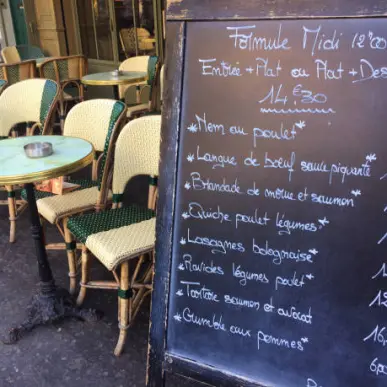 Formule Midi 12h00
Entrée + Plat ou Plat + Des
14,€30
*Nem au poulet*
*Langue de bœuf sauce piquante*
*Brandade de morue et saumon*
*Quiche poulet légumes*
*Lasagnes bolognaise*
*Ravioles légumes poulet*
*Tartare saumon et avocat
*Crumble aux pommes*